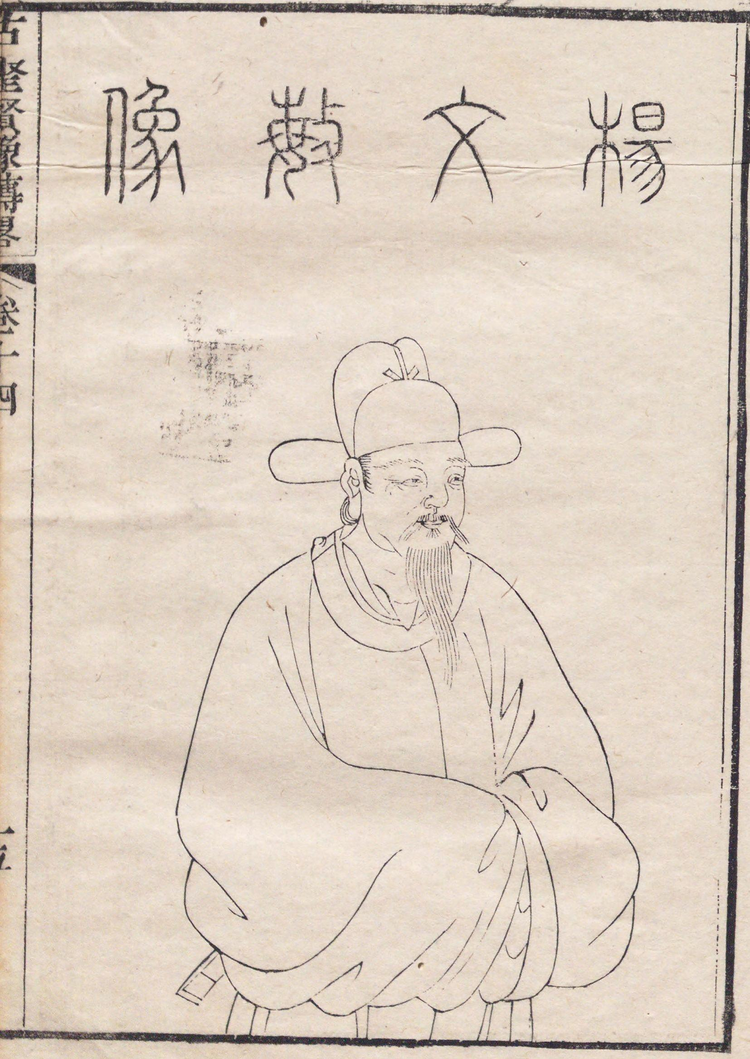 楊文敏像
古聖賢像傳畧
卷十四
十五